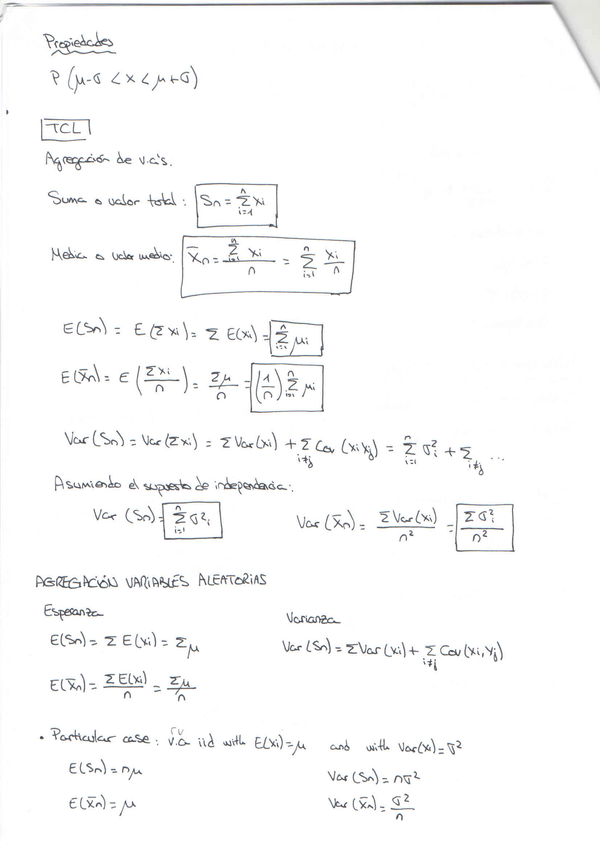 Propiedades
P (μ-σ < x < μ+σ)
TCL
Agregación de v.a's.
Suma o valor total : Sn = Σ_{i=1}^{n} xi
Media o valor medio: X̄n = Σ_{i=1}^{n} xi / n = Σ_{i=1}^{n} xi/n
E(Sn) = E(Σxi) = Σ E(xi) = Σ_{i=1}^{n} μi
E(X̄n) = E(Σxi/n) = Σμ/n = (1/n) Σ_{i=1}^{n} μi
Var(Sn) = Var(Σxi) = ΣVar(xi) + Σ_{i≠j} Cov(xi xj) = Σ_{i=1}^{n} σi² + Σ_{i≠j} ...
Asumiendo el supuesto de independencia:
Var (Sn) = Σ_{i=1}^{n} σ²i Var(X̄n) = ΣVar(xi)/n² = Σσi²/n²
AGREGACIÓN VARIABLES ALEATORIAS
Esperanza
E(Sn) = Σ E(xi) = Σμ
E(X̄n) = ΣE(xi)/n = Σμ/n
Varianza
Var(Sn) = ΣVar(xi) + Σ_{i≠j} Cov(xi, yj)
• Particular case : rv v.a iid with E(xi)=μ and with Var(xi)=σ²
E(Sn) = nμ Var(Sn) = nσ²
E(X̄n) = μ Var(X̄n) = σ²/n